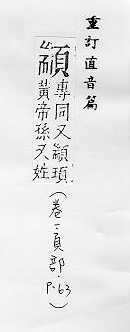 重訂直音篇
顓
專同又顓頊
黃帝孫又姓
(卷一頁部·P.63)